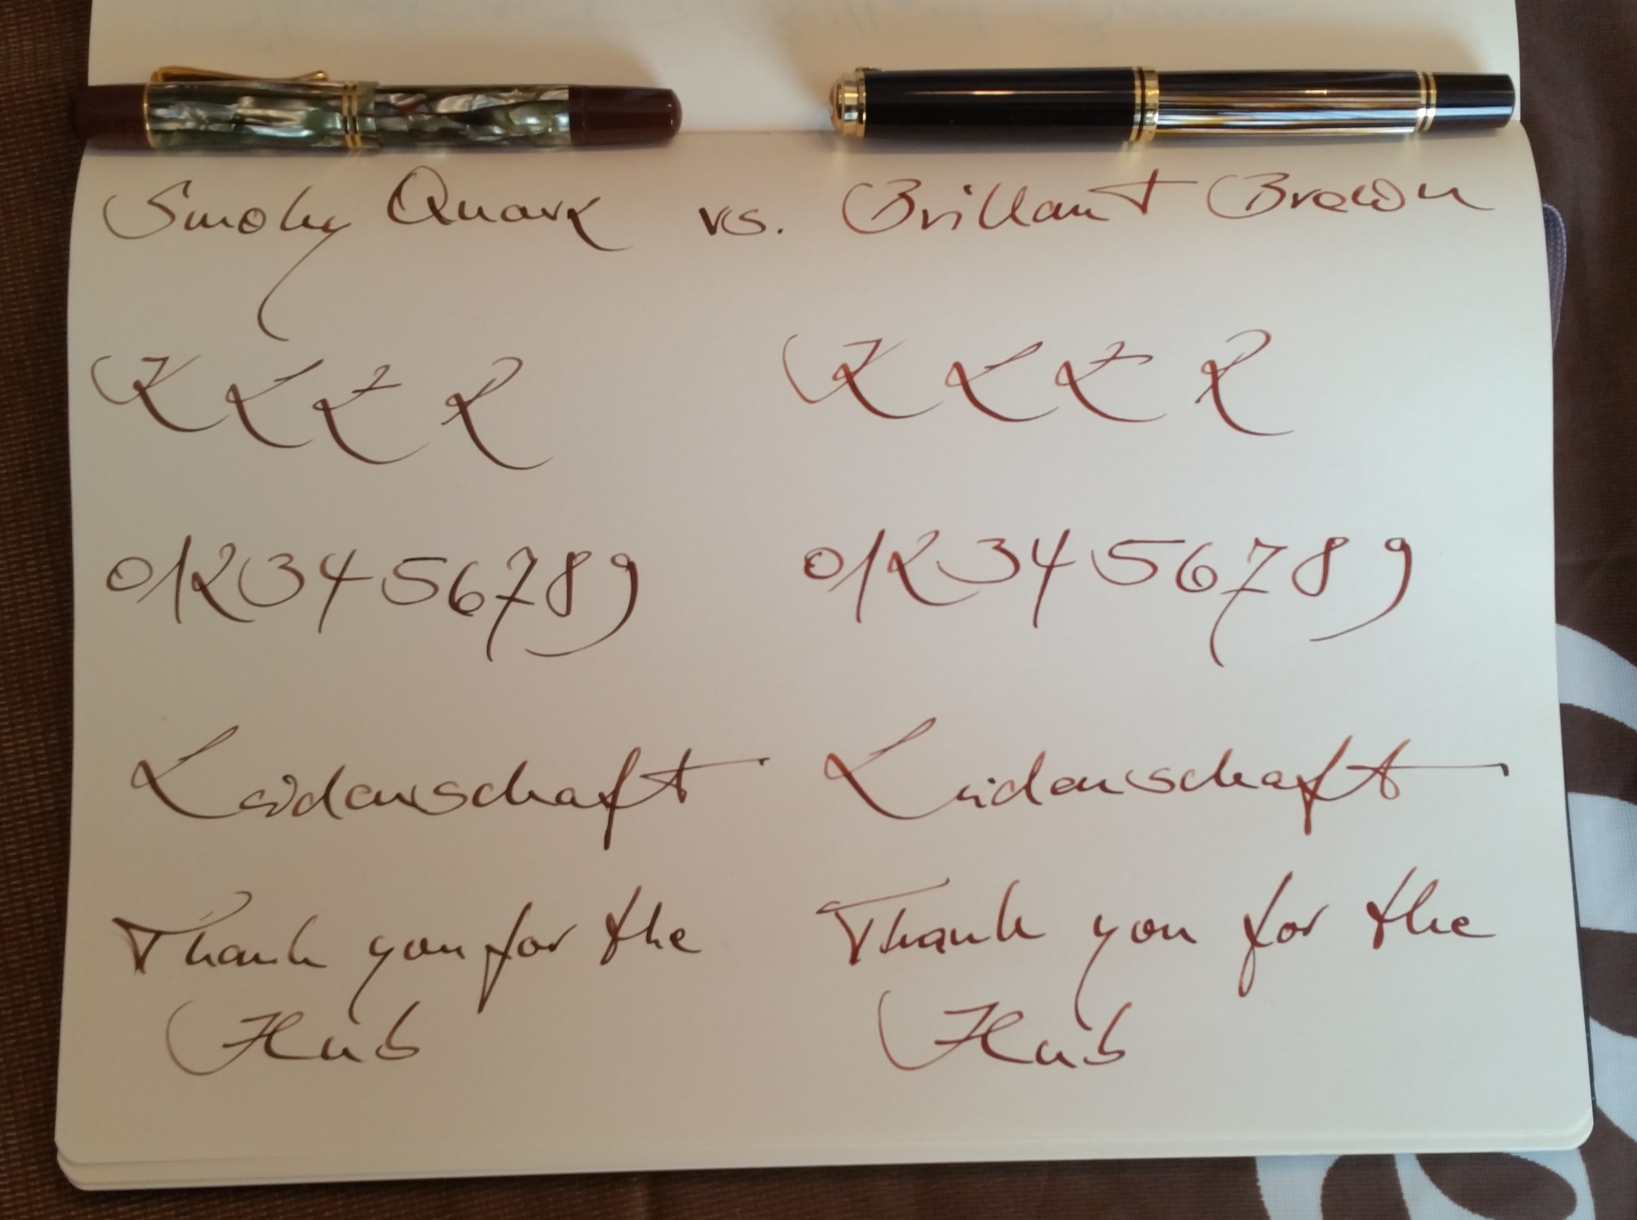 Smoky Quarz vs. Brillant Brown
0123456789 0123456789
Leidenschaft Leidenschaft
Thank you for the Thank you for the
Hub Hub